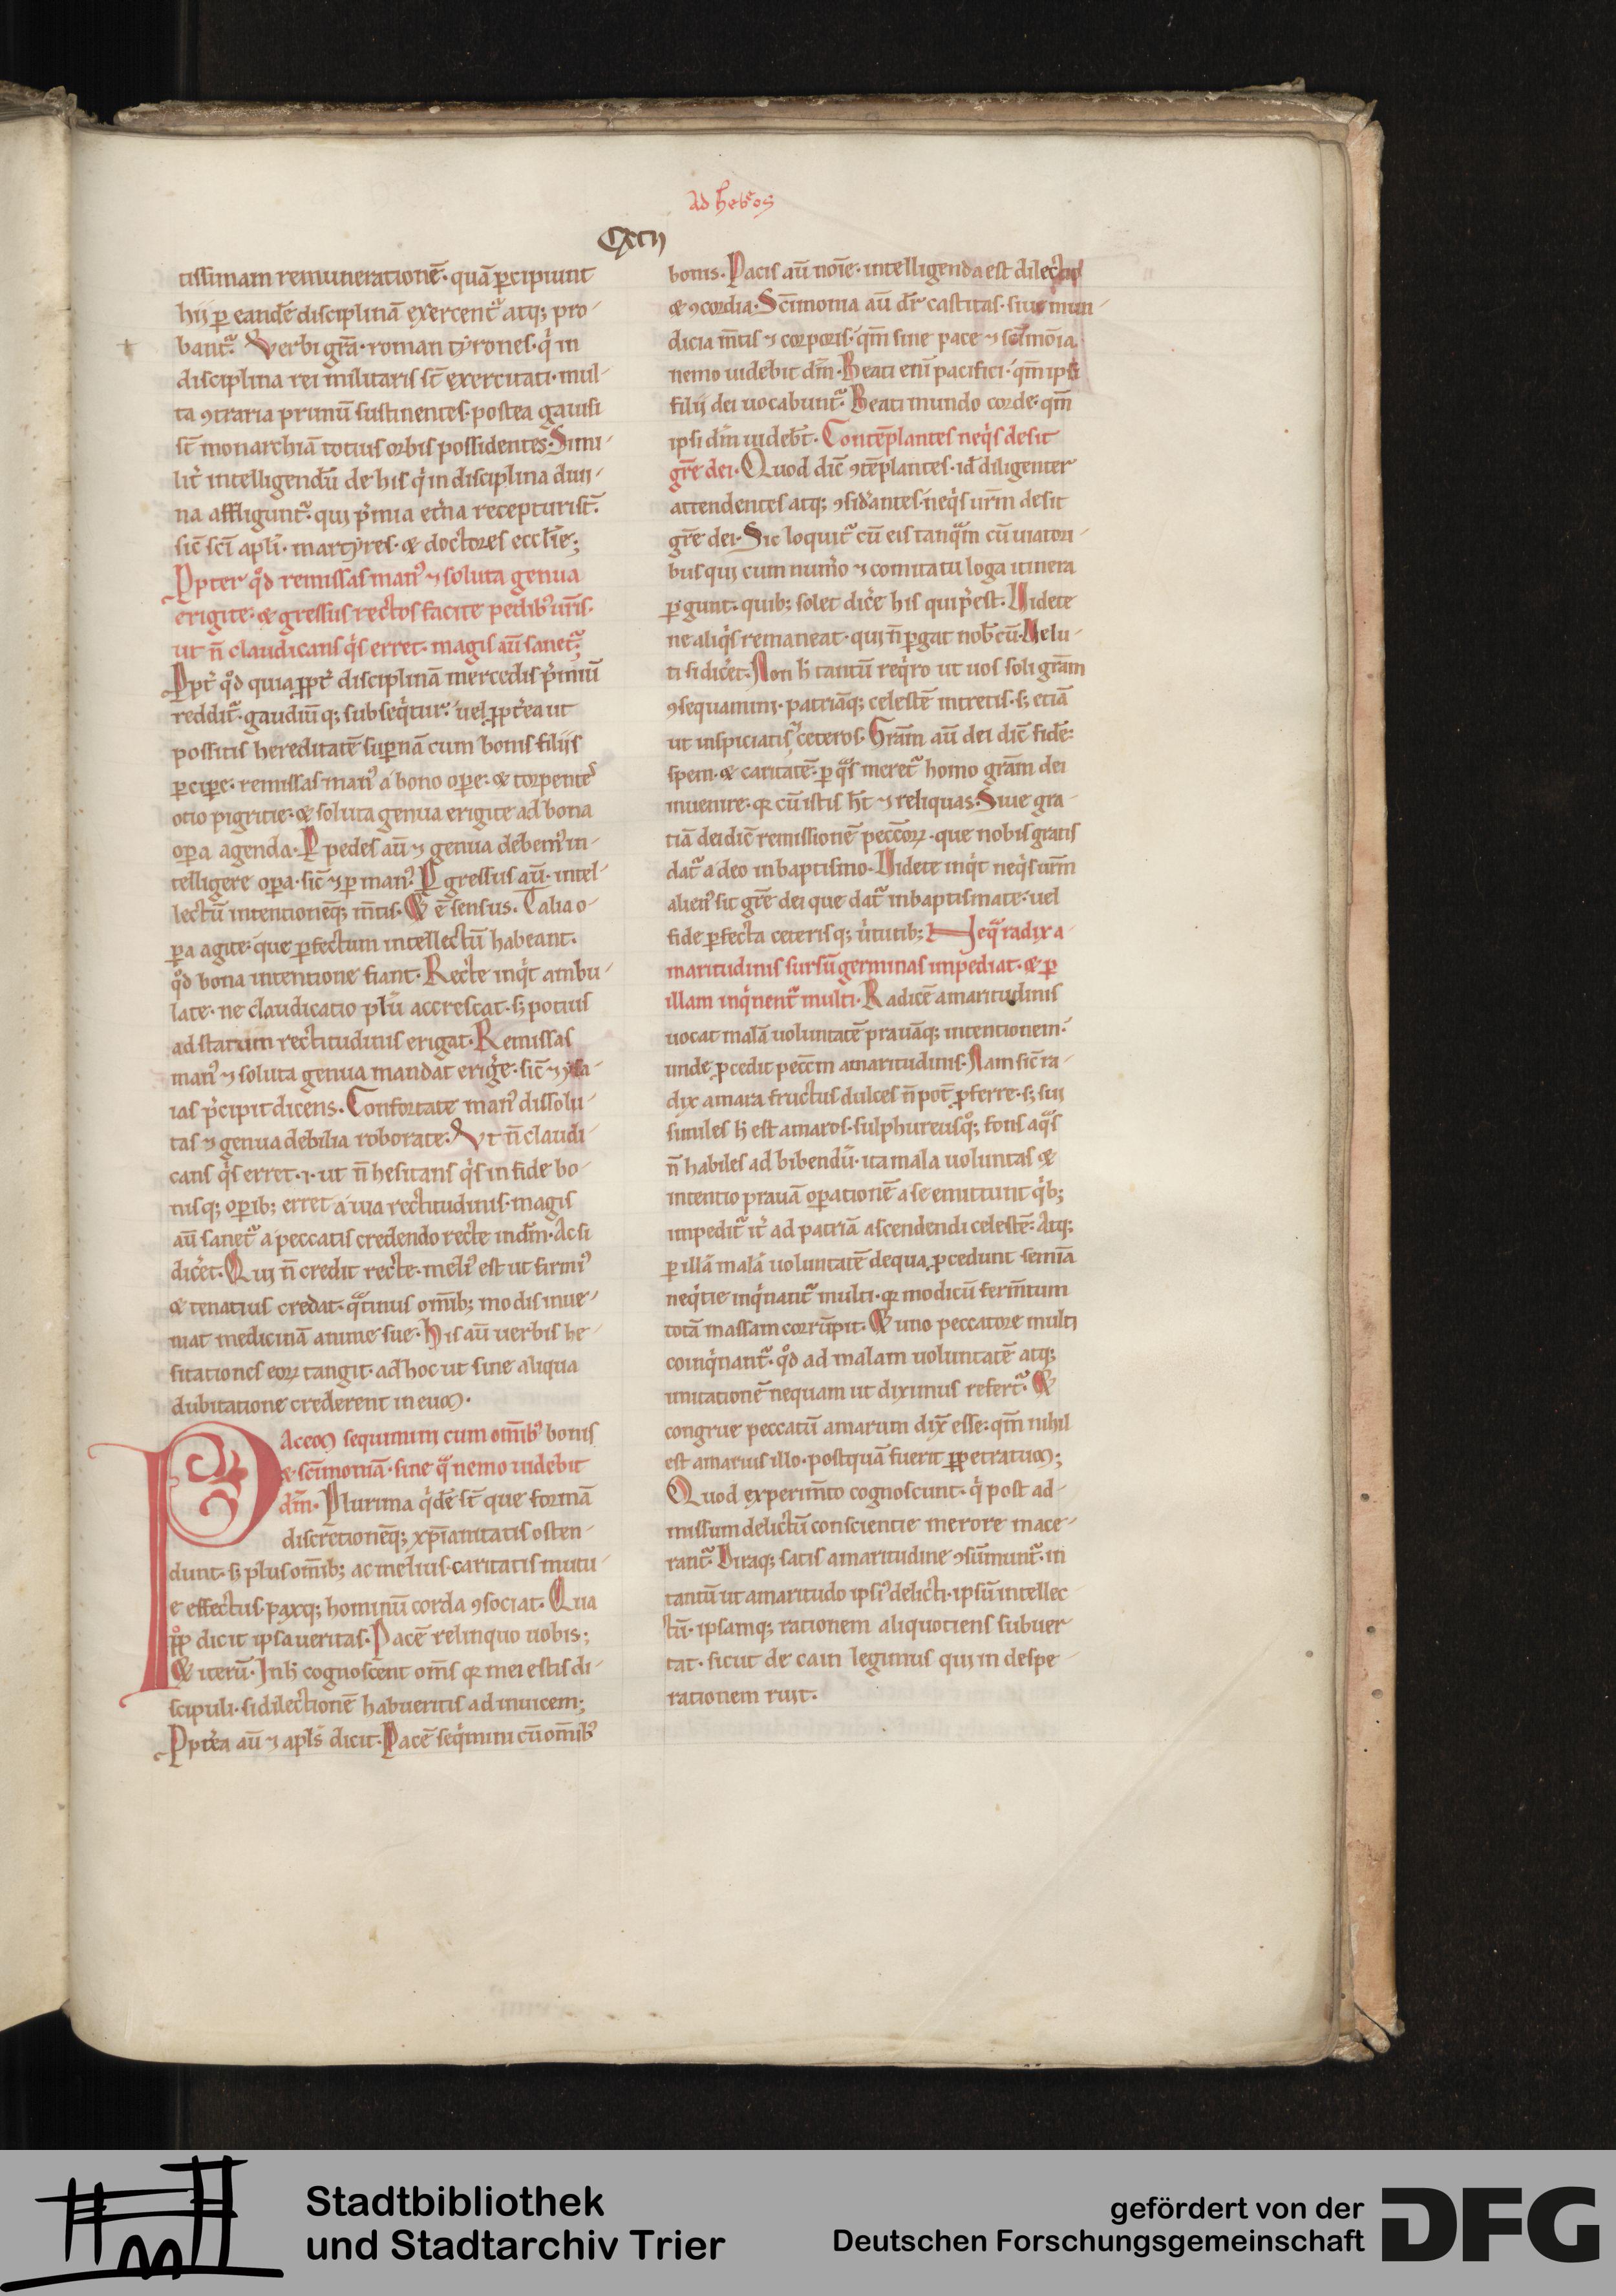 Ad heb̄os
Cxcij
tissimam remunerationē. quā ꝑcipiunt
hij ꝑ eandē disciplinā exercent᷑ atq; pro-
bant᷑. Verbi grā. roman tyrones. qͥ in
disciplina rei militaris st̄ exercitati. mul-
ta ꝯtraria primū sustinentes. postea gauisi
st̄ monarchiā totius orbis possidentes. Simi-
lit̓ intelligendū de his qͥ in disciplina diui-
na affligunt᷑. qui p̓mia et̓na recepturi st̄.
sic̄ sc̄i apl̓i. martyres. & doctores eccl̄ie;
Ꝓpter qͦd remissas manꝰ ⁊ soluta genua
erigite. & gressus rectos facite pedibꝰ ur̄is.
ut n̄ claudicans qͥs erret. magis aū sanet᷑;
Ꝓpt̓ qͦd quia ꝓpt̓ disciplinā mercedis p̓miū
reddit᷑. gaudiūq; subseqͥtur. uel ꝓpt̓ea ut
possitis hereditatē suꝑnā cum bonis filiis
ꝑciꝑe. remissas manꝰ a bono oꝑe. & torpente
otio pigritie. & soluta genua erigite ad bona
oꝑa agenda. P pedes aū ⁊ genua debemꝰ in-
telligere oꝑa. sic̄ ⁊ ꝑ manꝰ. P gressus aū. intel-
lectū intentionēq; m̄tis. Et ē sensus. Talia o-
ꝑa agite. que ꝑfectum intellectū habeant.
qͦd bona intentione fiant. Recte inqͥt ambu-
late. ne claudicatio plꝰū accrescat. s; potius
ad statum rectitudinis erigat. Remissas
manꝰ ⁊ soluta genua mandat erig̓e. sic̄ ⁊ ysa-
ias p̓cipit dicens. Confortate manꝰ dissolu-
tas ⁊ genua debilia roborate. Vt n̄ claudi-
cans qͥs erret. .i. ut n̄ hesitans qͥs in fide bo-
nisq; oꝑib; erret a uia rectitudinis. magis
aū sanet᷑ a peccatis credendo recte in dm̄. Ac si
dic̓et. Qui n̄ credit recte. meliꝰ est ut firmiꝰ
& tenatius credat. qͣtinus om̄ib; modis inue-
niat medicinā anime sue. His aū uerbis he-
sitationes eoꝝ tangit. ad hoc ut sine aliqua
dubitatione crederent in eum.
Pacem sequimini cum om̄ibꝰ bonis
& sc̄imoniā. sine qͣ nemo uidebit
dm̄. Plurima qͥdē st̄ que formā
discretionēq; xp̄ianitatis osten-
dunt. s; plus om̄ib; ac melius. caritatis mutu-
e effectus. paxq; hominū corda ꝯsociat. Qua
ꝓp dicit ipsa ueritas. Pacē relinquo uobis;
Et iterū. In h̄ cognoscent om̄s qꝛ mei estis di-
scipuli. si dilectionē habueritis ad inuicem;
Ꝓpt̓ea aū ⁊ apl̓s dicit. Pacē seqͥmini cū om̄ibꝰ
bonis. Pacis aū noīe. intelligenda est dilectio
& ꝯcordia. Sc̄imonia aū dr̄ castitas. siue mun-
dicia m̄tis ⁊ corporis. qm̄ sine pace ⁊ sc̄imōia
nemo uidebit dm̄. Beati enī pacifici. qm̄ ipsi
filij dei uocabunt᷑. Beati mundo corde. qm̄
ipsi dm̄ uidebt̄. Contēplantes neqͥs desit
gr̄e dei. Quod dic̄ ꝯtēplantes. id̄ diligenter
attendentes atq; ꝯsid̓antes. neqͥs ur̄m desit
gr̄e dei. Sic loquit᷑ cū eis tanqͣm cū uiatori-
bus qui cum num̓o ⁊ comitatu loga itinera
ꝑgunt. quib; solet dic̓e his qui p̓est. Videte
ne aliqͥs remaneat. qui n̄ ꝑgat nob̄cū. Velu-
ti si dic̓et. Non h̄ tantū reqͥro ut uos soli grām
ꝯsequamini. patriāq; celestē intretis. s; etiā
ut inspiciatis ceteros. Grām aū dei dic̄ fidē.
spem. & caritatē. ꝑ qͣs meret᷑ homo grām dei
inuenire. qꝛ cū istis h̄t ⁊ reliquas. Siue gra-
tiā dei dic̄ remissionē pecc̄oꝝ. que nobis gratis
dat᷑ a deo in baptismo. Videte inqͥt neqͥs ur̄m
alienꝰ sit gr̄e dei que dat᷑ in baptismate. uel
fide ꝑfecta ceterisq; uͥtutib; Neqͣ radix a-
maritudinis sursū germinas impediat. & ꝑ
illam inqͥnent᷑ multi. Radicē amaritudinis
uocat malā uoluntatē prauāq; intentionem.
unde ꝓcedit pecc̄m amaritudinis. Nam sic̄ ra-
dix amara fructus dulces n̄ pot̄ ꝓferre. s; sui
similes h̄ est amaros. sulphureusq; fons aqͣs
n̄ habiles ad bibendū. ita mala uoluntas &
intentio prauā oꝑationē a se emittunt qͥb;
impedit᷑ it̓ ad patriā ascendendi celestē. Atq;
ꝑ illā malā uoluntatē de qua ꝓcedunt semīa
neqͥtie inqͥnant᷑ multi. qꝛ modicū ferm̄tum
totā massam corrūpit. Et uno peccatore multi
coinqͥnant᷑. qͦd ad malam uoluntatē atq;
imitationē nequam ut diximus refert᷑. Et
congrue peccatū amarum dix̄ esse. qm̄ nihil
est amarius illo. postquā fuerit ꝑpetratum;
Quod experim̄to cognoscunt. qͥ post ad-
missum delictū conscientie merore mace-
rant᷑. Diraq; satis amaritudine ꝯsūmunt᷑. in
tantū ut amaritudo ipsiꝰ delicti. ipsū intellec-
tū. ipsamq; rationem aliquotiens subuer-
tat. sicut de cain legimus qui in despe-
rationem ruit.
Stadtbibliothek
und Stadtarchiv Trier
gefördert von der
Deutschen Forschungsgemeinschaft
DFG